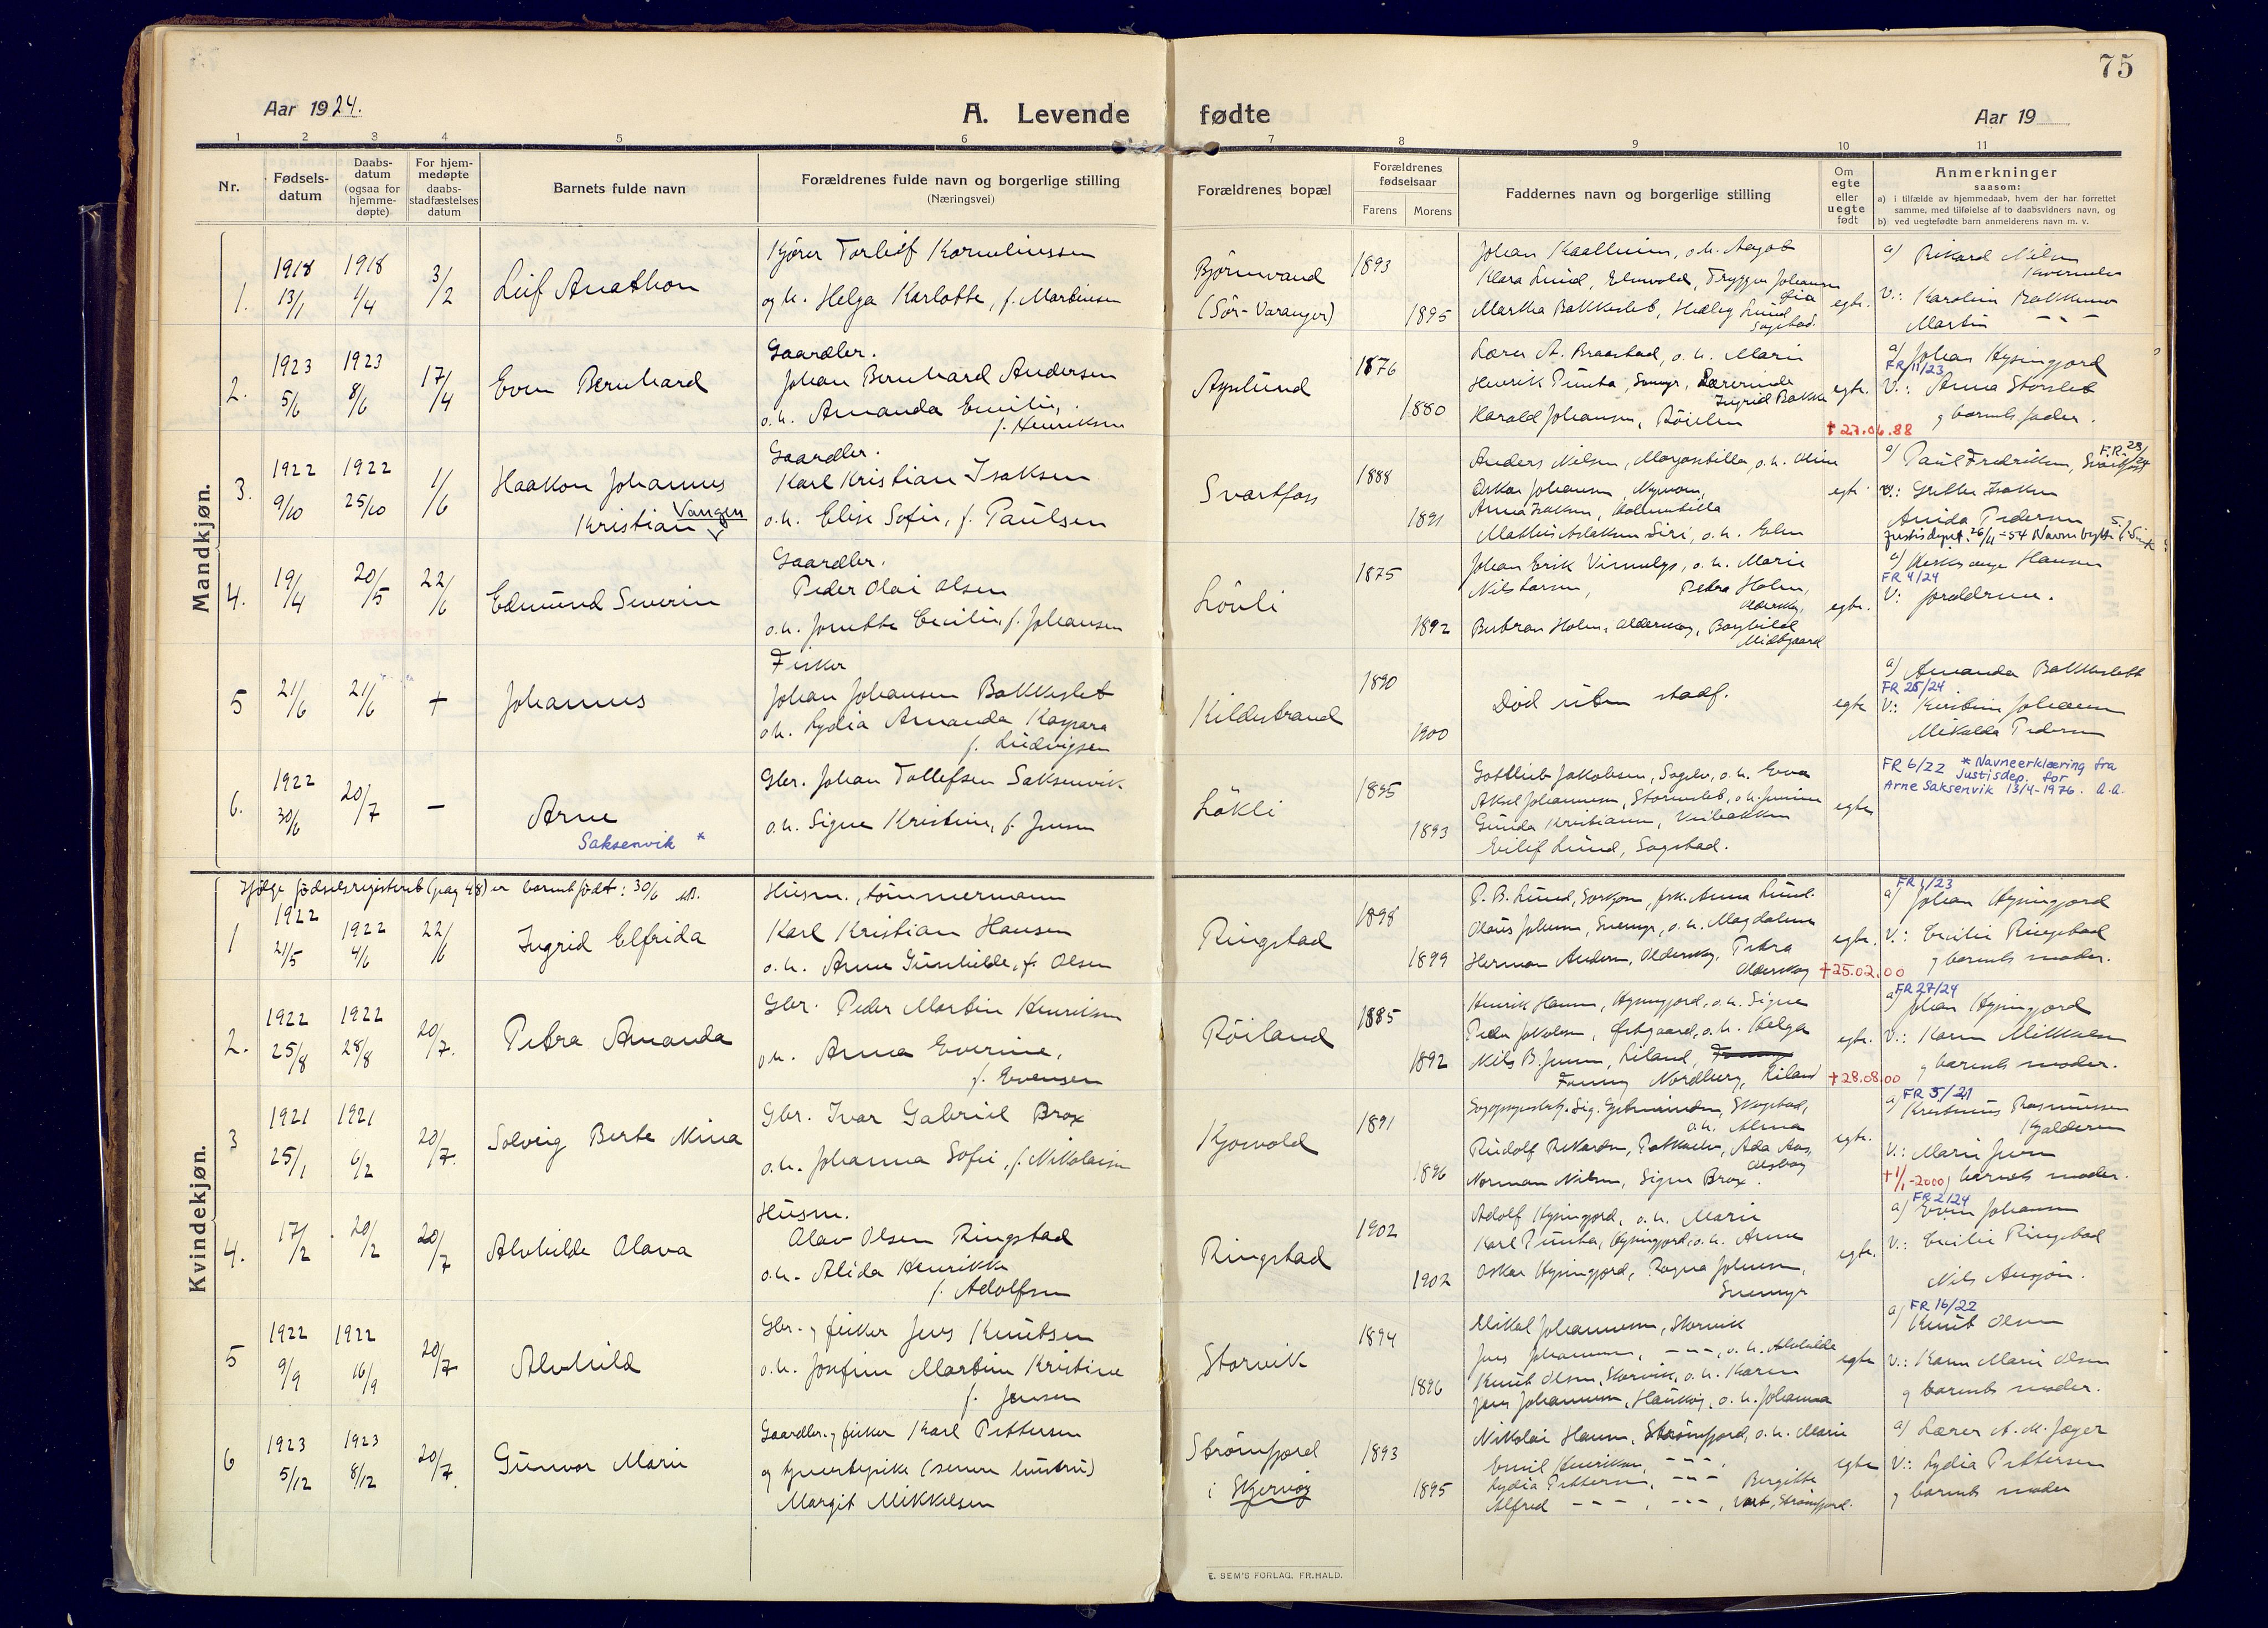 75
Aar 1924.
A. Levende fødte
Aar 19
1 2 3 4 5 6 7 8 9 10 11
Nr.
Fødsels-
datum
Daabs-
datum
(ogsaa for
hjemme-
døpte)
For hjem-
medøpte
daabs-
stadfæstelses
datum
Barnets fulde navn
Forældrenes fulde navn og borgerlige stilling
(Næringsvei)
Forældrenes bopæl
Forældrenes
fødselsaar
Farens Morens
Faddernes navn og borgerlige stilling
Om
egte
eller
uegte
født
Anmerkninger
saasom:
a) i tilfælde av hjemmedaab, hvem der har forrettet
samme, med tilføielse af to daabsvidners navn, og
b) ved uegtefødte barn anmelderens navn m. v.
Mandkjøn.
1. 1918 13/1 1918 1/4 3/2
Leif Anathon
Kjører Torleif Korneliussen
og h. Helga Karlotte, f. Martinsen
Bjørnvand
(Sør-Varanger)
1893
1895
Johan Kaalheim, o.h. Aagot
Klara Lund,
Martha Bakkeslet, Hedley Lund
Sagstad.
egte.
a) Rikard Nilsen
V.: Karolin
Martin - - -
2. 1923 5/6 1923 8/6 17/4
Even Bernhard
Gaardbr.
Johan Bernhard Andersen
o.h. Amanda Emilie,
f. Henriksen
Aspelund
1876
1880
Lærer A. Braastad, o.h. Marie
Henrik Punta, Svemyr, Lærerinde
Ingrid Bakke
Harald Johansen, Røielen
egte.
† 27.04.88
a) Johan Hysingjord
FR 11/23
V.: Anna Storslet
og barnets fader.
3. 1922 9/10 1922 25/10 1/6
Haakon Johannes
Kristian Vangen
Gaardbr.
Karl Kristian Isaksen
o.h. Elise Sofie, f. Paulsen
Svartfoss
1888
1891
Anders Nilsen, o.h. Oline
Oskar Johansen,
Anna Isaksen,
Mathis Aslaksen Siri, o.h. Elen
egte
F.R. 23/24
a) Paul Fredriksen, Svartfoss
v.: Grethe Isaksen
Anida Pedersen
Justisdept. 26/11-54 Navnebytte
4. 19/4 20/5 22/6
Edmund Severin
Gaardbr.
Peder Olai Olsen
o.h. Jonette Cecilie, f. Johansen
Løvli
1875
1892
Johan Erik o.h. Marie
Nils Larsen, Petra Holm,
Olderskog,
Bertran Holm, Olderskog, Borghild
Midtgaard
egte.
a) Hansen
FR 4/24
V: forældrene.
5 21/6 21/6 +
Johannes
Fisker
Johan Johansen Bakkeslet
o.h. Lydia Amanda Kaspara
f. Ludvigsen
Kildestrand
1890
1900
Død uten stadf.
egte
a) Amanda Bakkeslett
FR 25/24
V.: Kristine Johansen
Mikalda Pedersen
6. 1922 30/6 20/7 —
Arne
Saksenvik *
Gbr. Johan Tollefsen Saksenvik
o.h. Signe Kristine, f. Jensen
Løkli
1895
1893
Gottlieb Jakobsen, Sagelv, o.h. Eva
Aksel Johannesen, Storslet, o.h. Jenine
Gunda Kristiansen,
Eilif Lund, Sagstad.
egte
FR 6/22 * Navneerklæring fra
Justisdep. for
Arne Saksenvik 13/4-1976. a.a.
Kvindekjøn.
Ifølge fødselsregisteret (pag 48) er barnet født: 30/6
1 1922 21/5 1922 4/6 22/6
Ingrid Elfrida
Husm., tømmermann
Karl Kristian Hansen
o.h. Anne Gunhilde, f. Olsen
Ringstad
1898
1899
P. B. Lund, Sørkjosen, frk. Anna Lund.
Olaus Johnsen, Svemyr, o.h. Magdalena
Herman Andersen, Olderskog, Petra
Olderskog
egte.
†25.02.00
FR 1/23
a) Johan Hysingjord
V.: Cecilie Ringstad
og barnets moder.
2. 1922 25/8 1922 28/8 20/7.
Petra Amanda
Gbr. Peder Martin Henriksen
o.h. Anna Everine,
f. Evensen
Røiland
1885
1892
Henrik Hansen, Hysingjord, o.h. Signe
Peder Jakobsen, o.h. Helga
Nils B. Jensen, Liland,
Fanny Nordberg, Liland
egte.
†28.08.00
FR 27/24
a) Johan Hysingjord
V.: Karen Mikkelsen
og barnets moder.
3 1921 25/1 1921 6/2 20/7.
Solveig Berte Nina
Gbr. Ivar Gabriel Brox
o.h. Johanna Sofie, f. Nikolaisen
Kjosvold
1891
1896
Skogstad,
o.h. Alma
Rudolf Rikardsen,
Norman Nilsen, Signe Brox.
egte.
FR 5/21
a) Kristinus Rasmussen
V.: Marie Jensen
†1/1-2000 barnets moder.
4. 17/2 20/2 20/7
Alvhilde Olava
Husm.
Olav Olsen Ringstad
o.h. Alida Henrikke
f. Adolfsen
Ringstad
1902
1902
Adolf Hysingjord, o.h. Marie
Karl Punta, Hysingjord, o.h. Anne
Oskar Hysingjord, Ragna Johnsen,
Svemyr
egte.
FR 2/24
a) Even Johansen
V.: Cecilie Ringstad
Nils
5 1922 9/9 1922 16/9 20/7
Alvhild
Gbr. og fisker Jens Knutsen
o.h. Josefine Martine Kristine
f. Jensen
Storvik
1894
1896
Mikal Johannesen, Storvik
Jens Johannesen, - - -, o.h. Alvhilde
Knut Olsen, Storvik, o.h. Karen
Jens Johannesen, Hauskog, o.h. Johanna
egte
FR 16/22
a) Knut Olsen
V.: Karen Marie Olsen
og barnets moder.
6 1923 5/12 1923 8/12 20/7.
Gunvor Marie
Gaardbr. og fisker Karl Pettersen
og tjenestepike (senere hustru)
Margit Mikkelsen
Strømfjord
i Skjervøy
1893
1895
Nikolai Hansen, Strømfjord, o.h. Marie
Emil Henriksen, - - -,
Lydia Pettersen, - - - Bergitte
Alfred - - -, - - -, Strømfjord.
egte
a) Lærer A. M. Jæger
V.: Lydia Pettersen
og barnets moder
E. SEM'S FORLAG, FR.HALD.